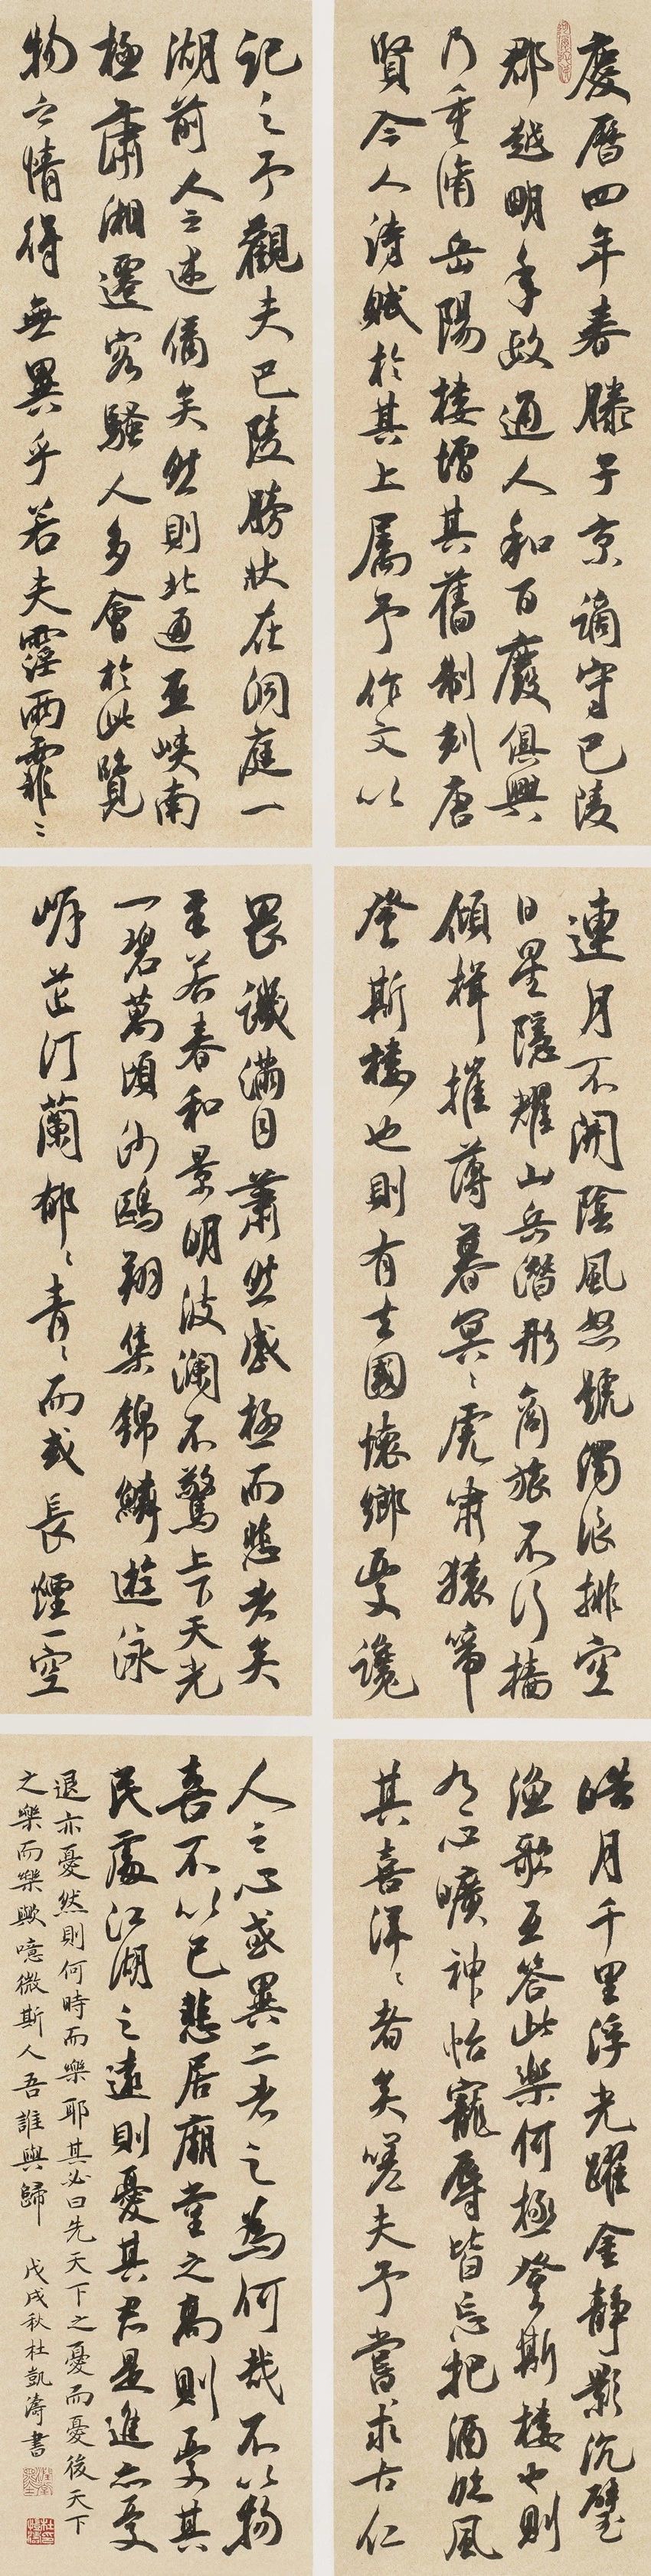 慶曆四年春滕子京謫守巴陵
郡越明年政通人和百廢俱興
乃重脩岳陽樓增其舊制刻唐
賢今人詩賦於其上屬予作文以
記之予觀夫巴陵勝狀在洞庭一
湖前人之述備矣然則北通巫峽南
極瀟湘遷客騷人多會於此覽
物之情得無異乎若夫霪雨霏〻
連月不開陰風怒號濁浪排空
日星隱耀山岳潛形商旅不行檣
傾楫摧薄暮冥〻虎嘯猿啼
登斯樓也則有去國懷鄉憂讒
畏譏滿目蕭然感極而悲者矣
至若春和景明波瀾不驚上下天光
一碧萬頃沙鷗翔集錦鱗遊泳
岸芷汀蘭郁〻青〻而或長煙一空
皓月千里浮光躍金靜影沉璧
漁歌互答此樂何極登斯樓也則
有心曠神怡寵辱皆忘把酒臨風
其喜洋〻者矣嗟夫予嘗求古仁
人之心或異二者之為何哉不以物
喜不以己悲居廟堂之高則憂其
民處江湖之遠則憂其君是進亦憂
退亦憂然則何時而樂耶其必曰先天下之憂而憂後天下
之樂而樂歟噫微斯人吾誰與歸 戊戌秋杜凱濤書